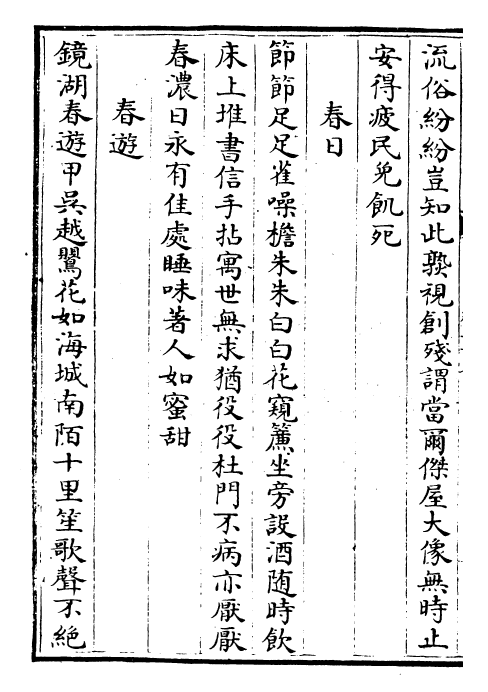 流俗紛紛豈知此熟視創殘謂當爾傑屋大像無時止
安得疲民免飢死
春日
節節足足雀噪檐朱朱白白花窺簾坐旁設酒随時飲
床上堆書信手拈寓世無求猶役役杜門不病亦厭厭
春濃日永有佳處睡味著人如蜜甜
春遊
鏡湖春遊甲吳越鶯花如海城南陌十里笙歌聲不絶